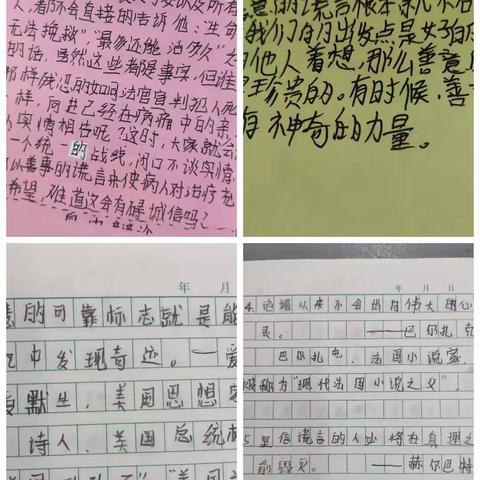 人,都不会直接的告诉他:生命
无法挽救"最多还能活多久"
的话,虽然这些都是事实,但谁
那样残忍的如同法官宣判犯人死
一样,向其已经在病痛中的亲
以实情相告呢?这时,大家就会
一个统一的战线,闭口不谈实情
以善意的谎言来使病人对治疗充
希望,难道这会有碍诚信吗?
意的谎言根本就不
我们的出发点是好的
他人着想,那么善意
是珍贵的。有时候,善
有神奇的力量。
年 月
慧的可靠标志就是能
凡中发现奇迹。——爱
爱默生,美国思想家
诗人,美国总统林
年 月 日
4.谎言从来不会出自伟大的心
灵。——巴尔扎克
巴尔扎克,法国小说家,
被称为"现代法国小说之父",
5.坚信谎言的人必将在真理之
前毁灭。——赫尔巴特